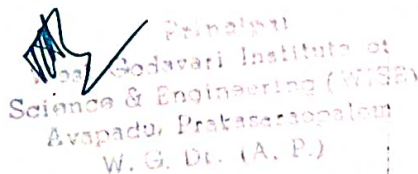 Principal
West Godavari Institute of
Science & Engineering (WISE)
Avapadu, Prakasaraopalem
W. G. Dt. (A. P.)